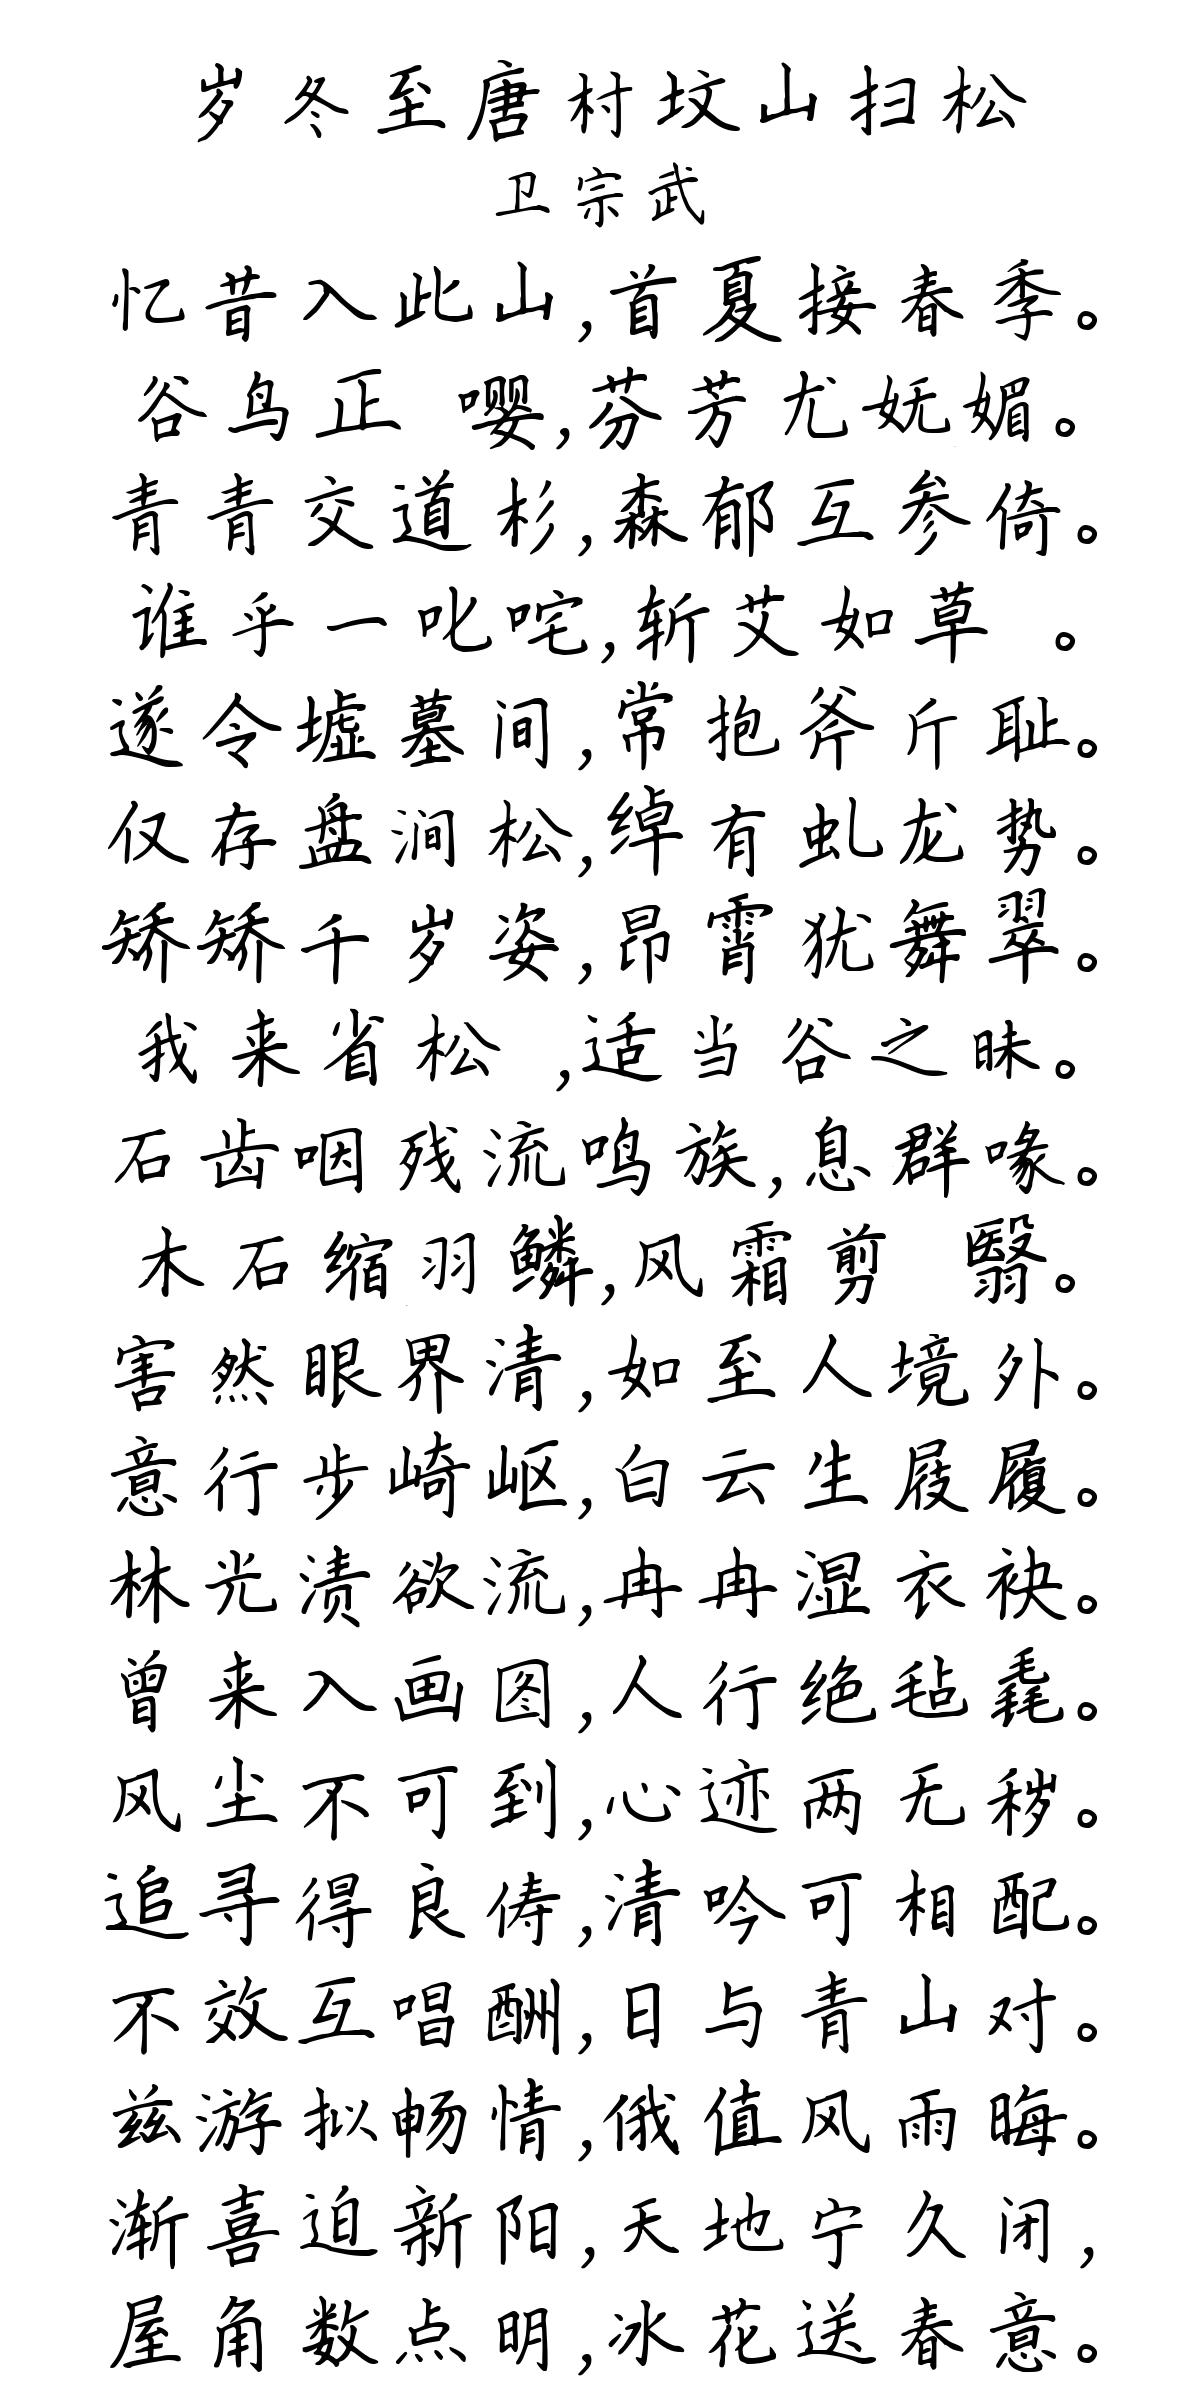 岁冬至唐村坟山扫松
卫宗武
忆昔入此山,首夏接春季。
谷鸟正 嘤,芬芳尤妩媚。
青青交道杉,森郁互参倚。
谁乎一叱咤,斩艾如草 。
遂令墟墓间,常抱斧斤耻。
仅存盘涧松,绰有虬龙势。
矫矫千岁姿,昂霄犹舞翠。
我来省松 ,适当谷之昧。
石齿咽残流鸣族,息群喙。
木石缩羽鳞,风霜剪 翳。
害然眼界清,如至人境外。
意行步崎岖,白云生屐履。
林光渍欲流,冉冉湿衣袂。
曾来入画图,人行绝毡毳。
风尘不可到,心迹两无秽。
追寻得良俦,清吟可相配。
不效互唱酬,日与青山对。
兹游拟畅情,俄值风雨晦。
渐喜迫新阳,天地宁久闭,
屋角数点明,冰花送春意。